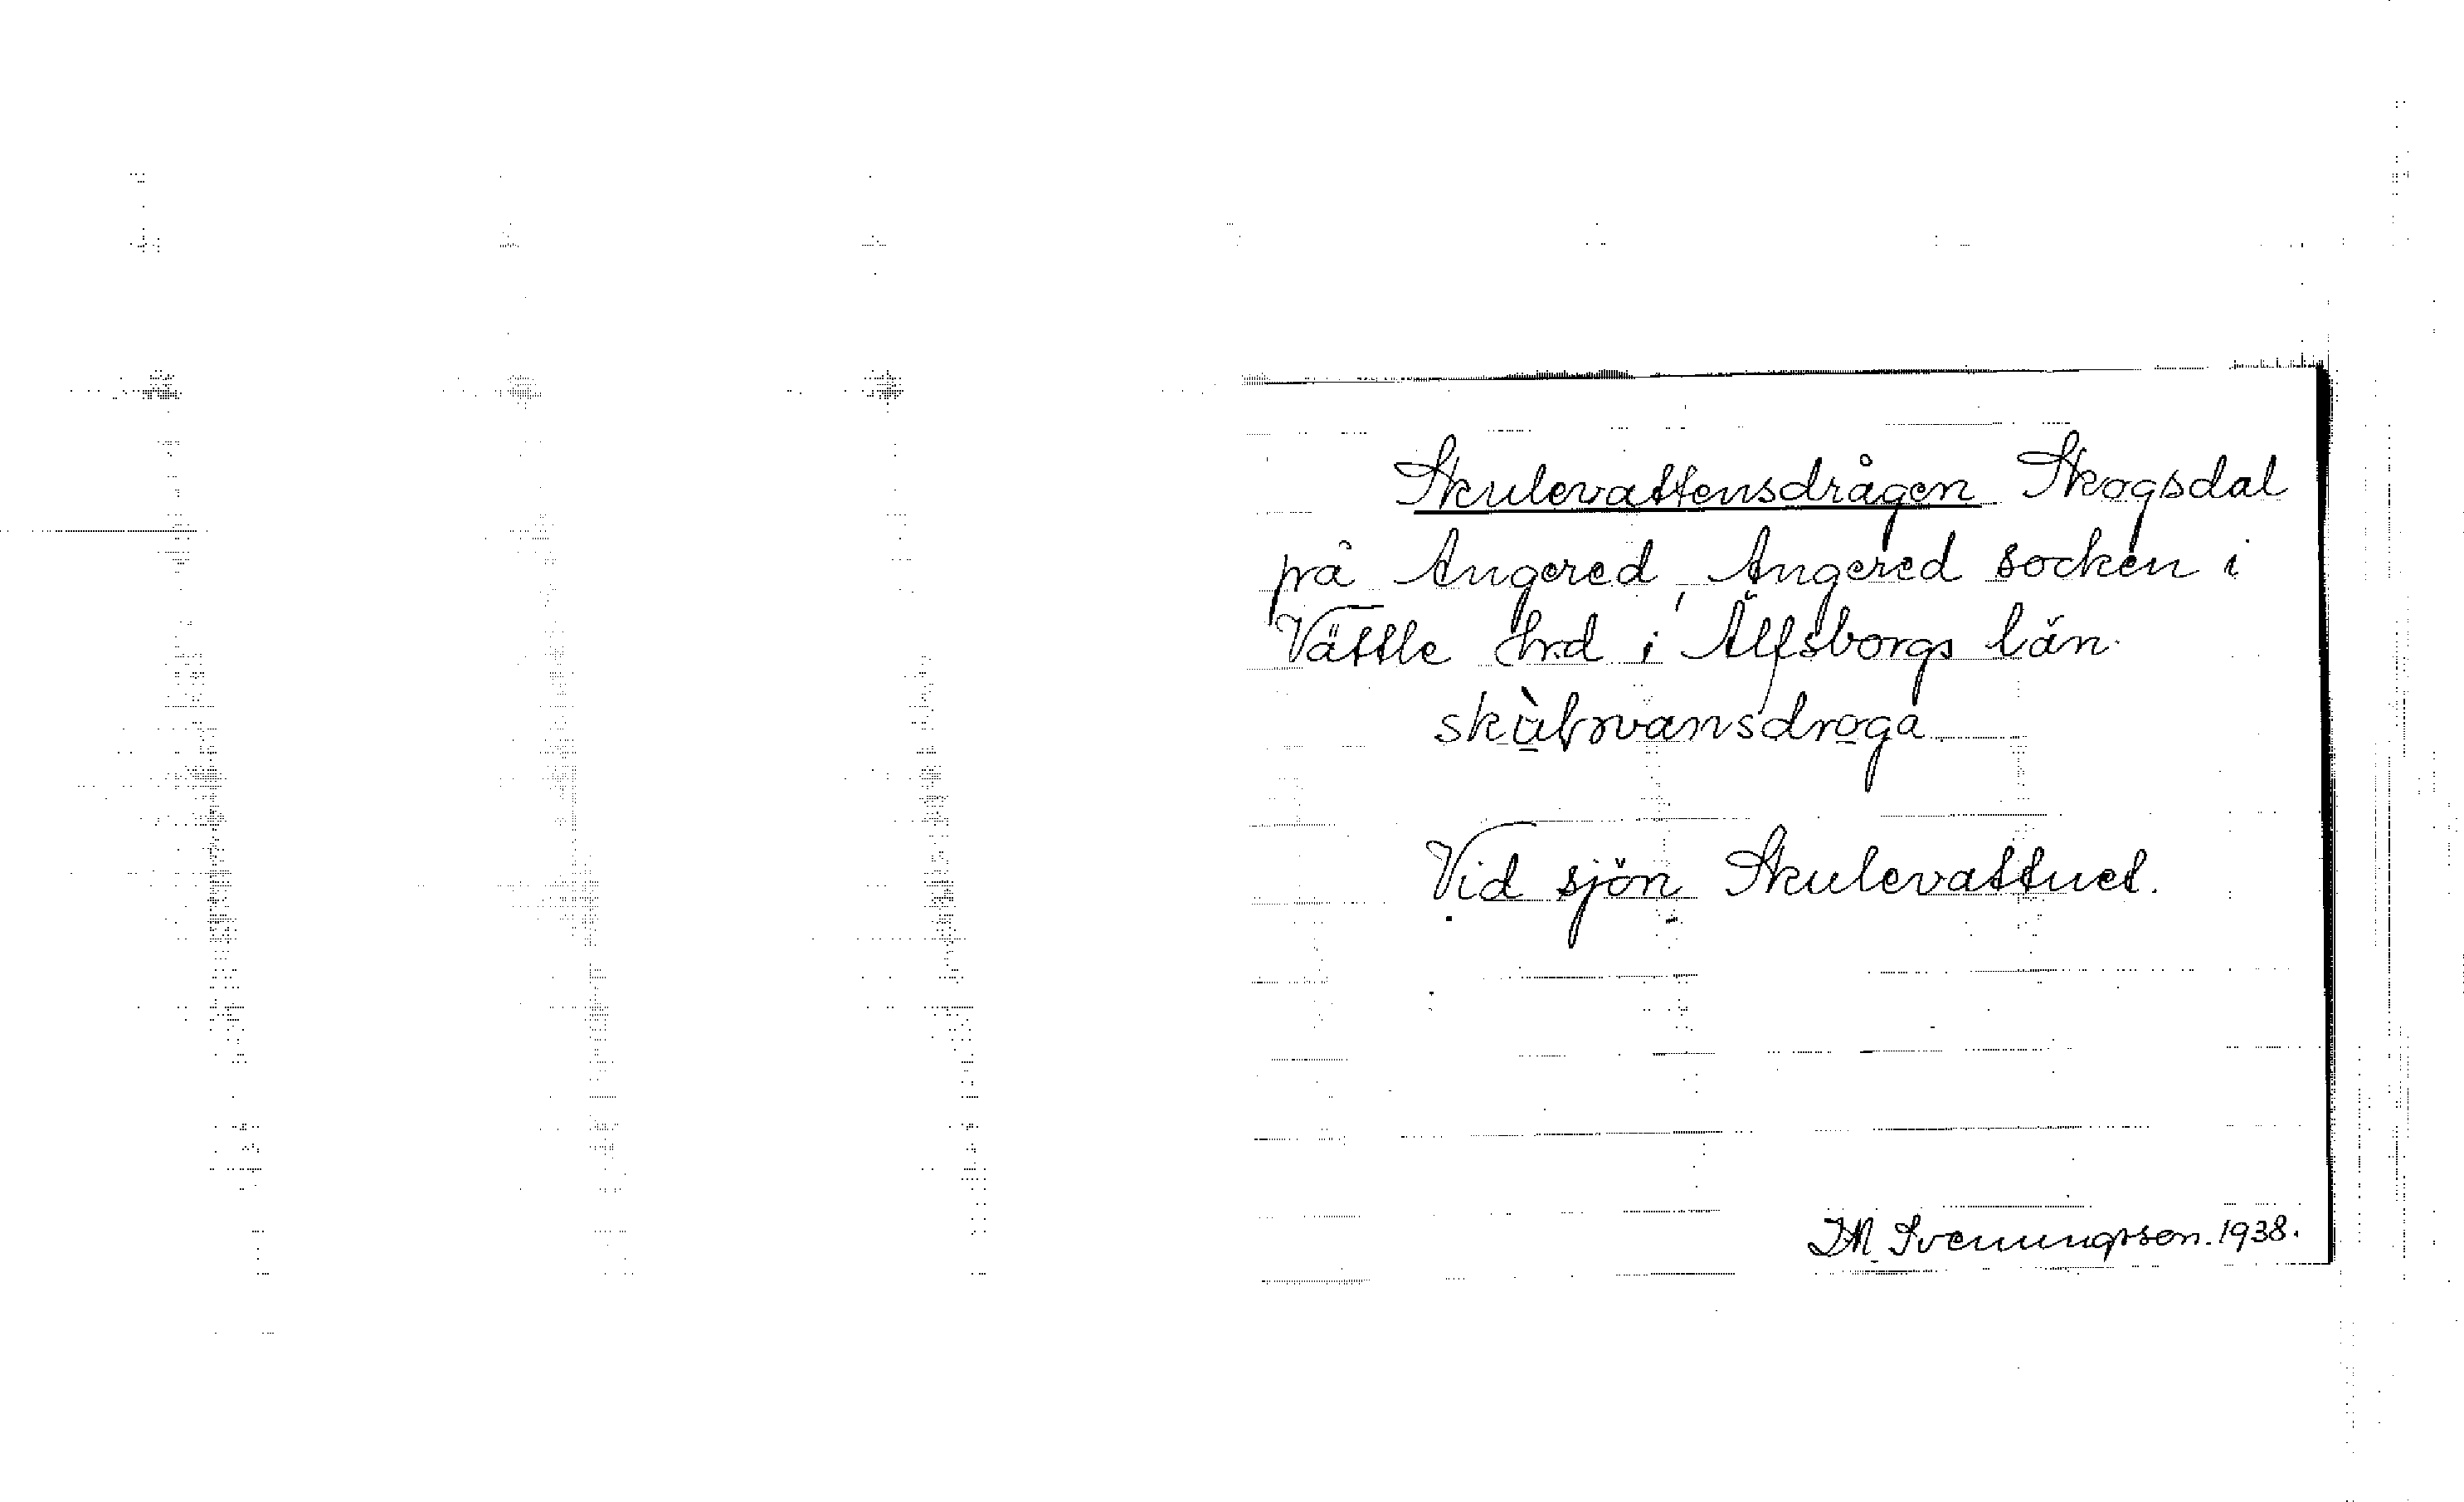 Skulevattensdrågen Skogsdal
på Angered, Angered socken i
Vättle hrd i Älfsborgs län.
Vid sjön Skulevattnet.
IM Svenungsson. 1938.